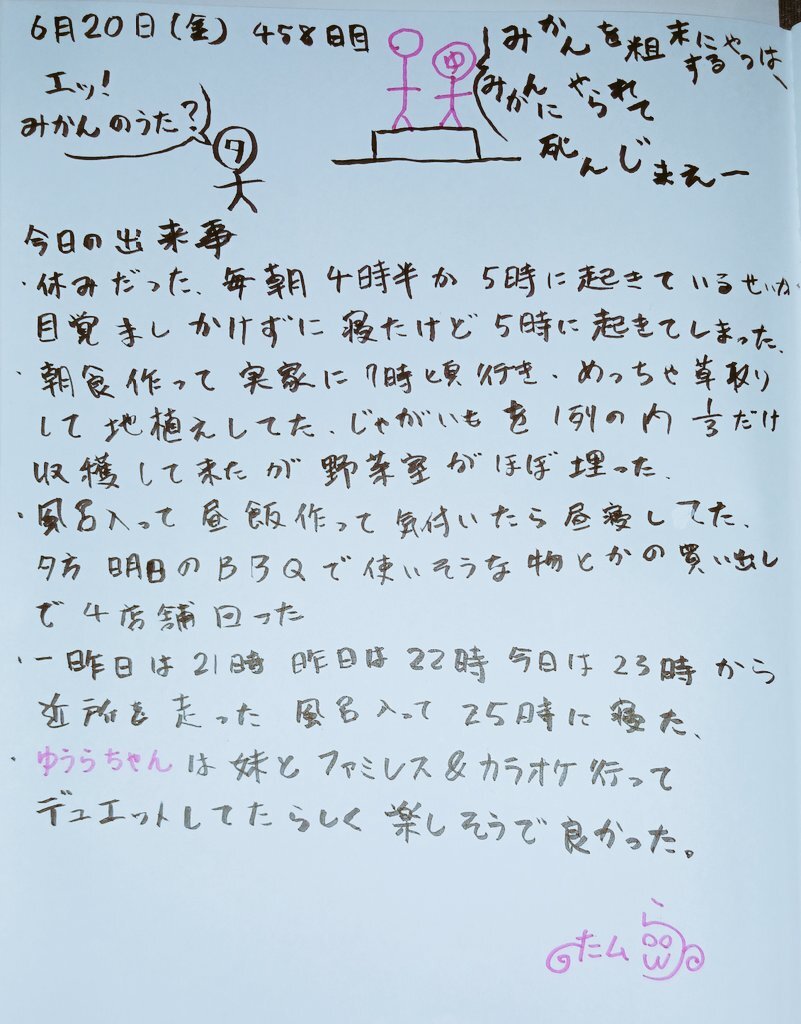 6月20日(金) 458日目
エッ!
みかんのうた?
タ
ゆ
みかんを粗末に
するやつは、
みかんに やられて
死んじまえー
今日の出来事
・休みだった、毎朝4時半か5時に起きているせいか
目覚ましかけずに寝たけど5時に起きてしまった、
・朝食作って実家に7時頃行き、めっちゃ草取り
して地植えしてた、じゃがいもを1列の内1/3だけ
収穫して来たが野菜室がほぼ埋った、
・風呂入って昼飯作って気付いたら昼寝してた、
夕方 明日のBBQで使いそうな物とかの買い出し
で4店舗回った
・一昨日は21時 昨日は22時 今日は23時から
近所を走った 風呂入って25時に寝た、
・ゆうらちゃんは妹とファミレス&カラオケ行って
デュエットしてたらしく楽しそうで良かった。
たム